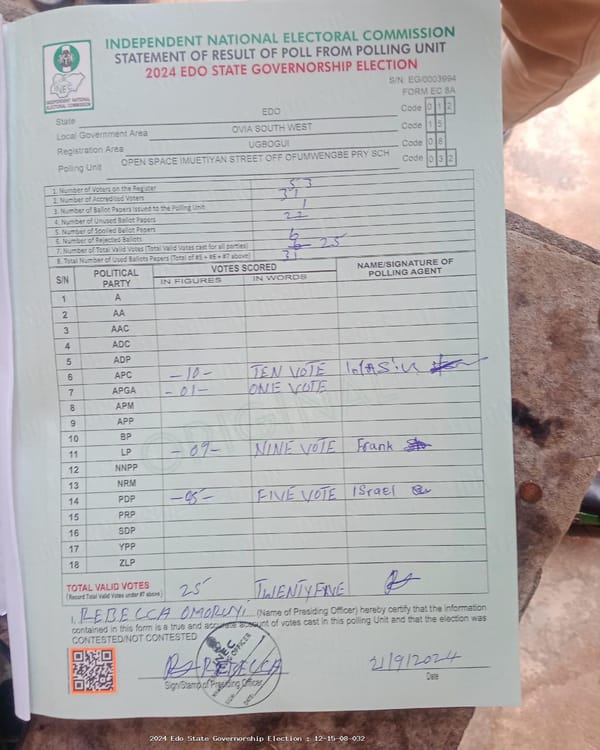 INDEPENDENT NATIONAL ELECTORAL COMMISSION
STATEMENT OF RESULT OF POLL FROM POLLING UNIT
2024 EDO STATE GOVERNORSHIP ELECTION
INEC
INDEPENDENT NATIONAL ELECTORAL COMMISSION
S/N: EG/0003994
FORM EC 8A
State EDO Code 0 1 2
Local Government Area OVIA SOUTH WEST Code 1 5
Registration Area UGBOGUI Code 0 8
Polling Unit OPEN SPACE IMUETIYAN STREET OFF OFUMWENGBE PRY SCH Code 0 3 2
1. Number of Voters on the Register 53
2. Number of Accredited Voters 31
3. Number of Ballot Papers Issued to the Polling Unit
4. Number of Unused Ballot Papers 22
5. Number of Spoiled Ballot Papers
6. Number of Rejected Ballots 6
7. Number of Total Valid Votes (Total Valid Votes cast for all parties) 25
8. Total Number of Used Ballots Papers (Total of #5 + #6 + #7 above) 31
S/N POLITICAL PARTY VOTES SCORED NAME/SIGNATURE OF POLLING AGENT
IN FIGURES IN WORDS
1 A
2 AA
3 AAC
4 ADC
5 ADP
6 APC -10- TEN VOTE
7 APGA -01- ONE VOTE
8 APM
9 APP
10 BP
11 LP -09- NINE VOTE Frank
12 NNPP
13 NRM
14 PDP -05- FIVE VOTE Israel
15 PRP
16 SDP
17 YPP
18 ZLP
TOTAL VALID VOTES 25 TWENTYFIVE
(Record Total Valid Votes under #7 above)
I, REBECCA OMORUYI (Name of Presiding Officer) hereby certify that the information
contained in this form is a true and accurate account of votes cast in this polling Unit and that the election was
CONTESTED/NOT CONTESTED
REBECCA 21/9/2024
Sign/Stamp of Presiding Officer Date
2024 Edo State Governorship Election : 12-15-08-032